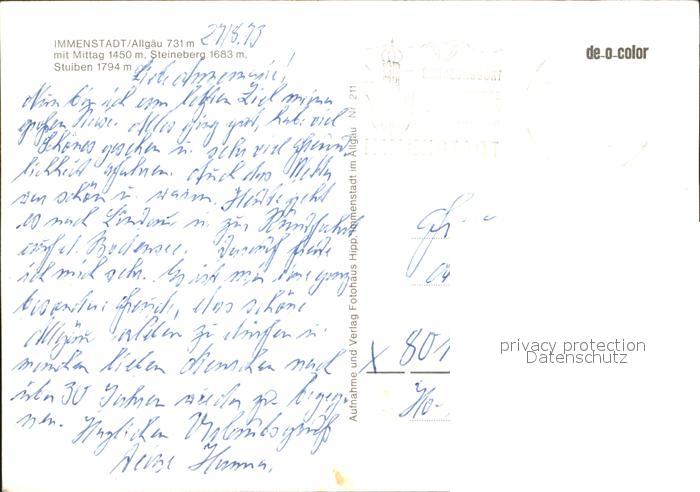 27/8.73
IMMENSTADT/Allgäu 731 m
mit Mittag 1450 m, Steineberg 1683 m,
Stuiben 1794 m
de-o-color
Liebe Annemarie!
Nun bin ich am letzten Ziel meiner
großen Reise. Alles ging gut, habe viel
Schönes gesehen u. sehr viel Freund-
lichkeit erfahren. Auch das Wetter
war schön u. warm. Heute geht
es nach Lindau u. zur Rundfahrt
auf d. Bodensee. Darauf freue
ich mich sehr. Es ist mir eine ganz
besondere Freude, das schöne
Allgäu erleben zu dürfen u.
manchen lieben Menschen nach
über 30 Jahren wieder zu begeg-
nen. Herzlichen Urlaubsgruß
Deine Hanna.
Aufnahme und Verlag Fotohaus Hipp, Immenstadt im Allgäu Nr. 211
X 801
privacy protection
Datenschutz